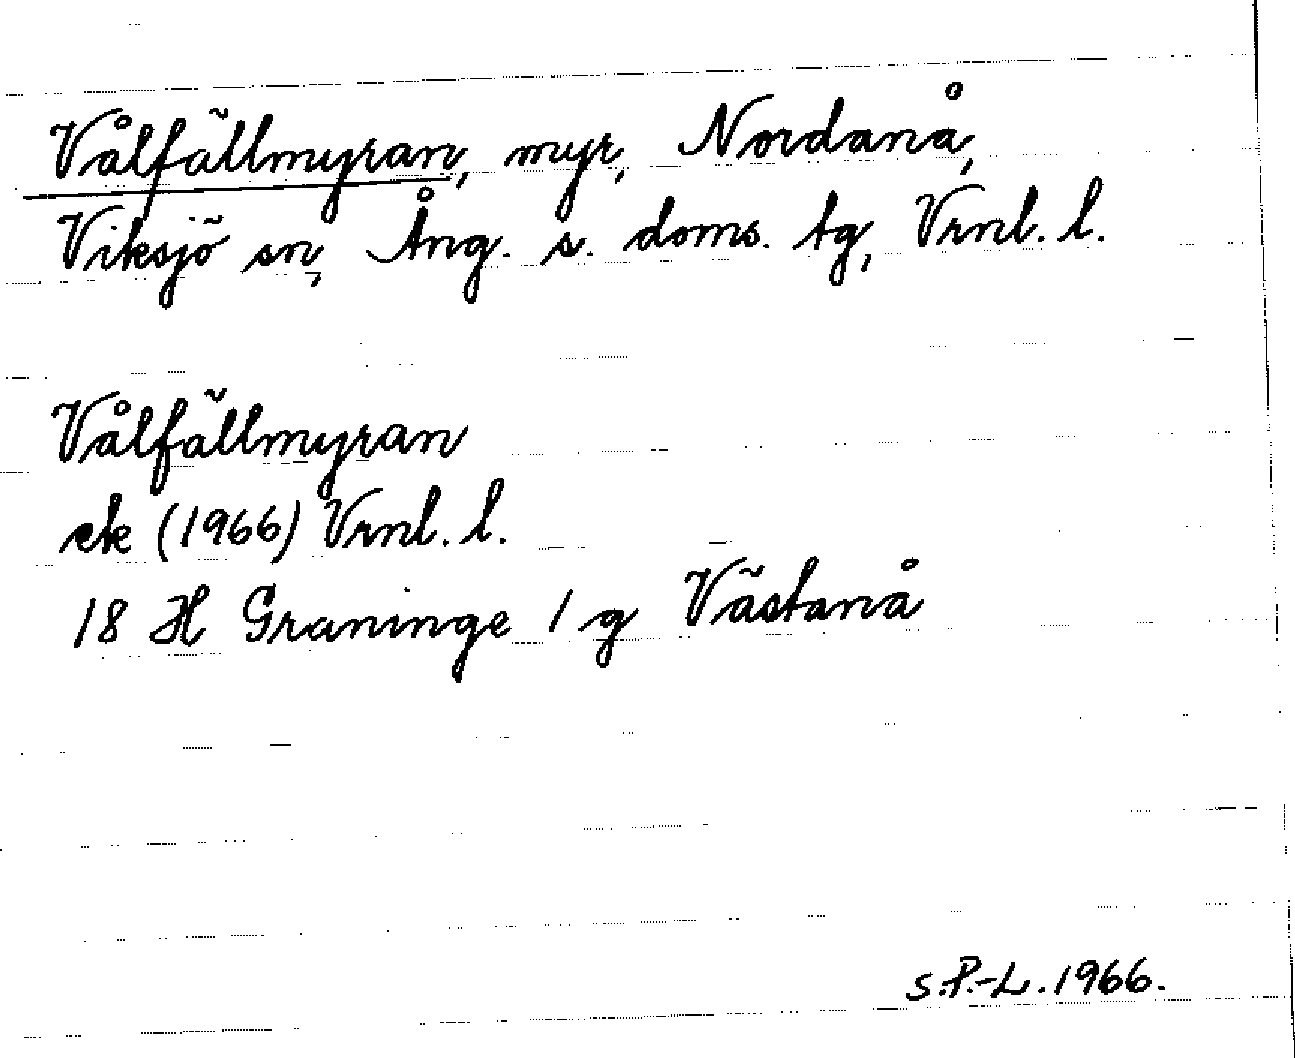 Vålfällmyran, myr, Nordanå,
Viksjö sn, Ång. s. doms. tg, Vrnl. l.
Vålfällmyran
ek (1966) Vrnl. l.
18 H Graninge 1 g Västanå
S.P.-L. 1966.